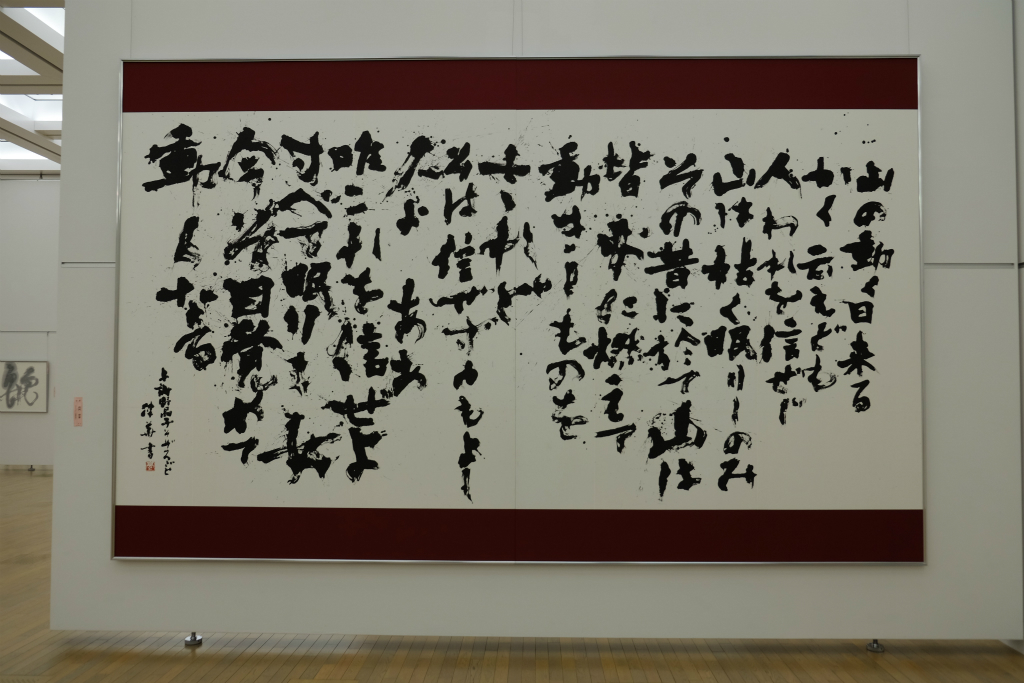 山の動く日来る
かく云えども
人われを信ぜじ
山は姑く眠りしのみ
その昔に於て山は
皆火に燃えて
動きしものを
されど
そは信ぜずともよし
人よ ああ
唯これを信ぜよ
すべて眠りし女
今ぞ目覚めて
動くなる
与謝野晶子のそぞろごと
書